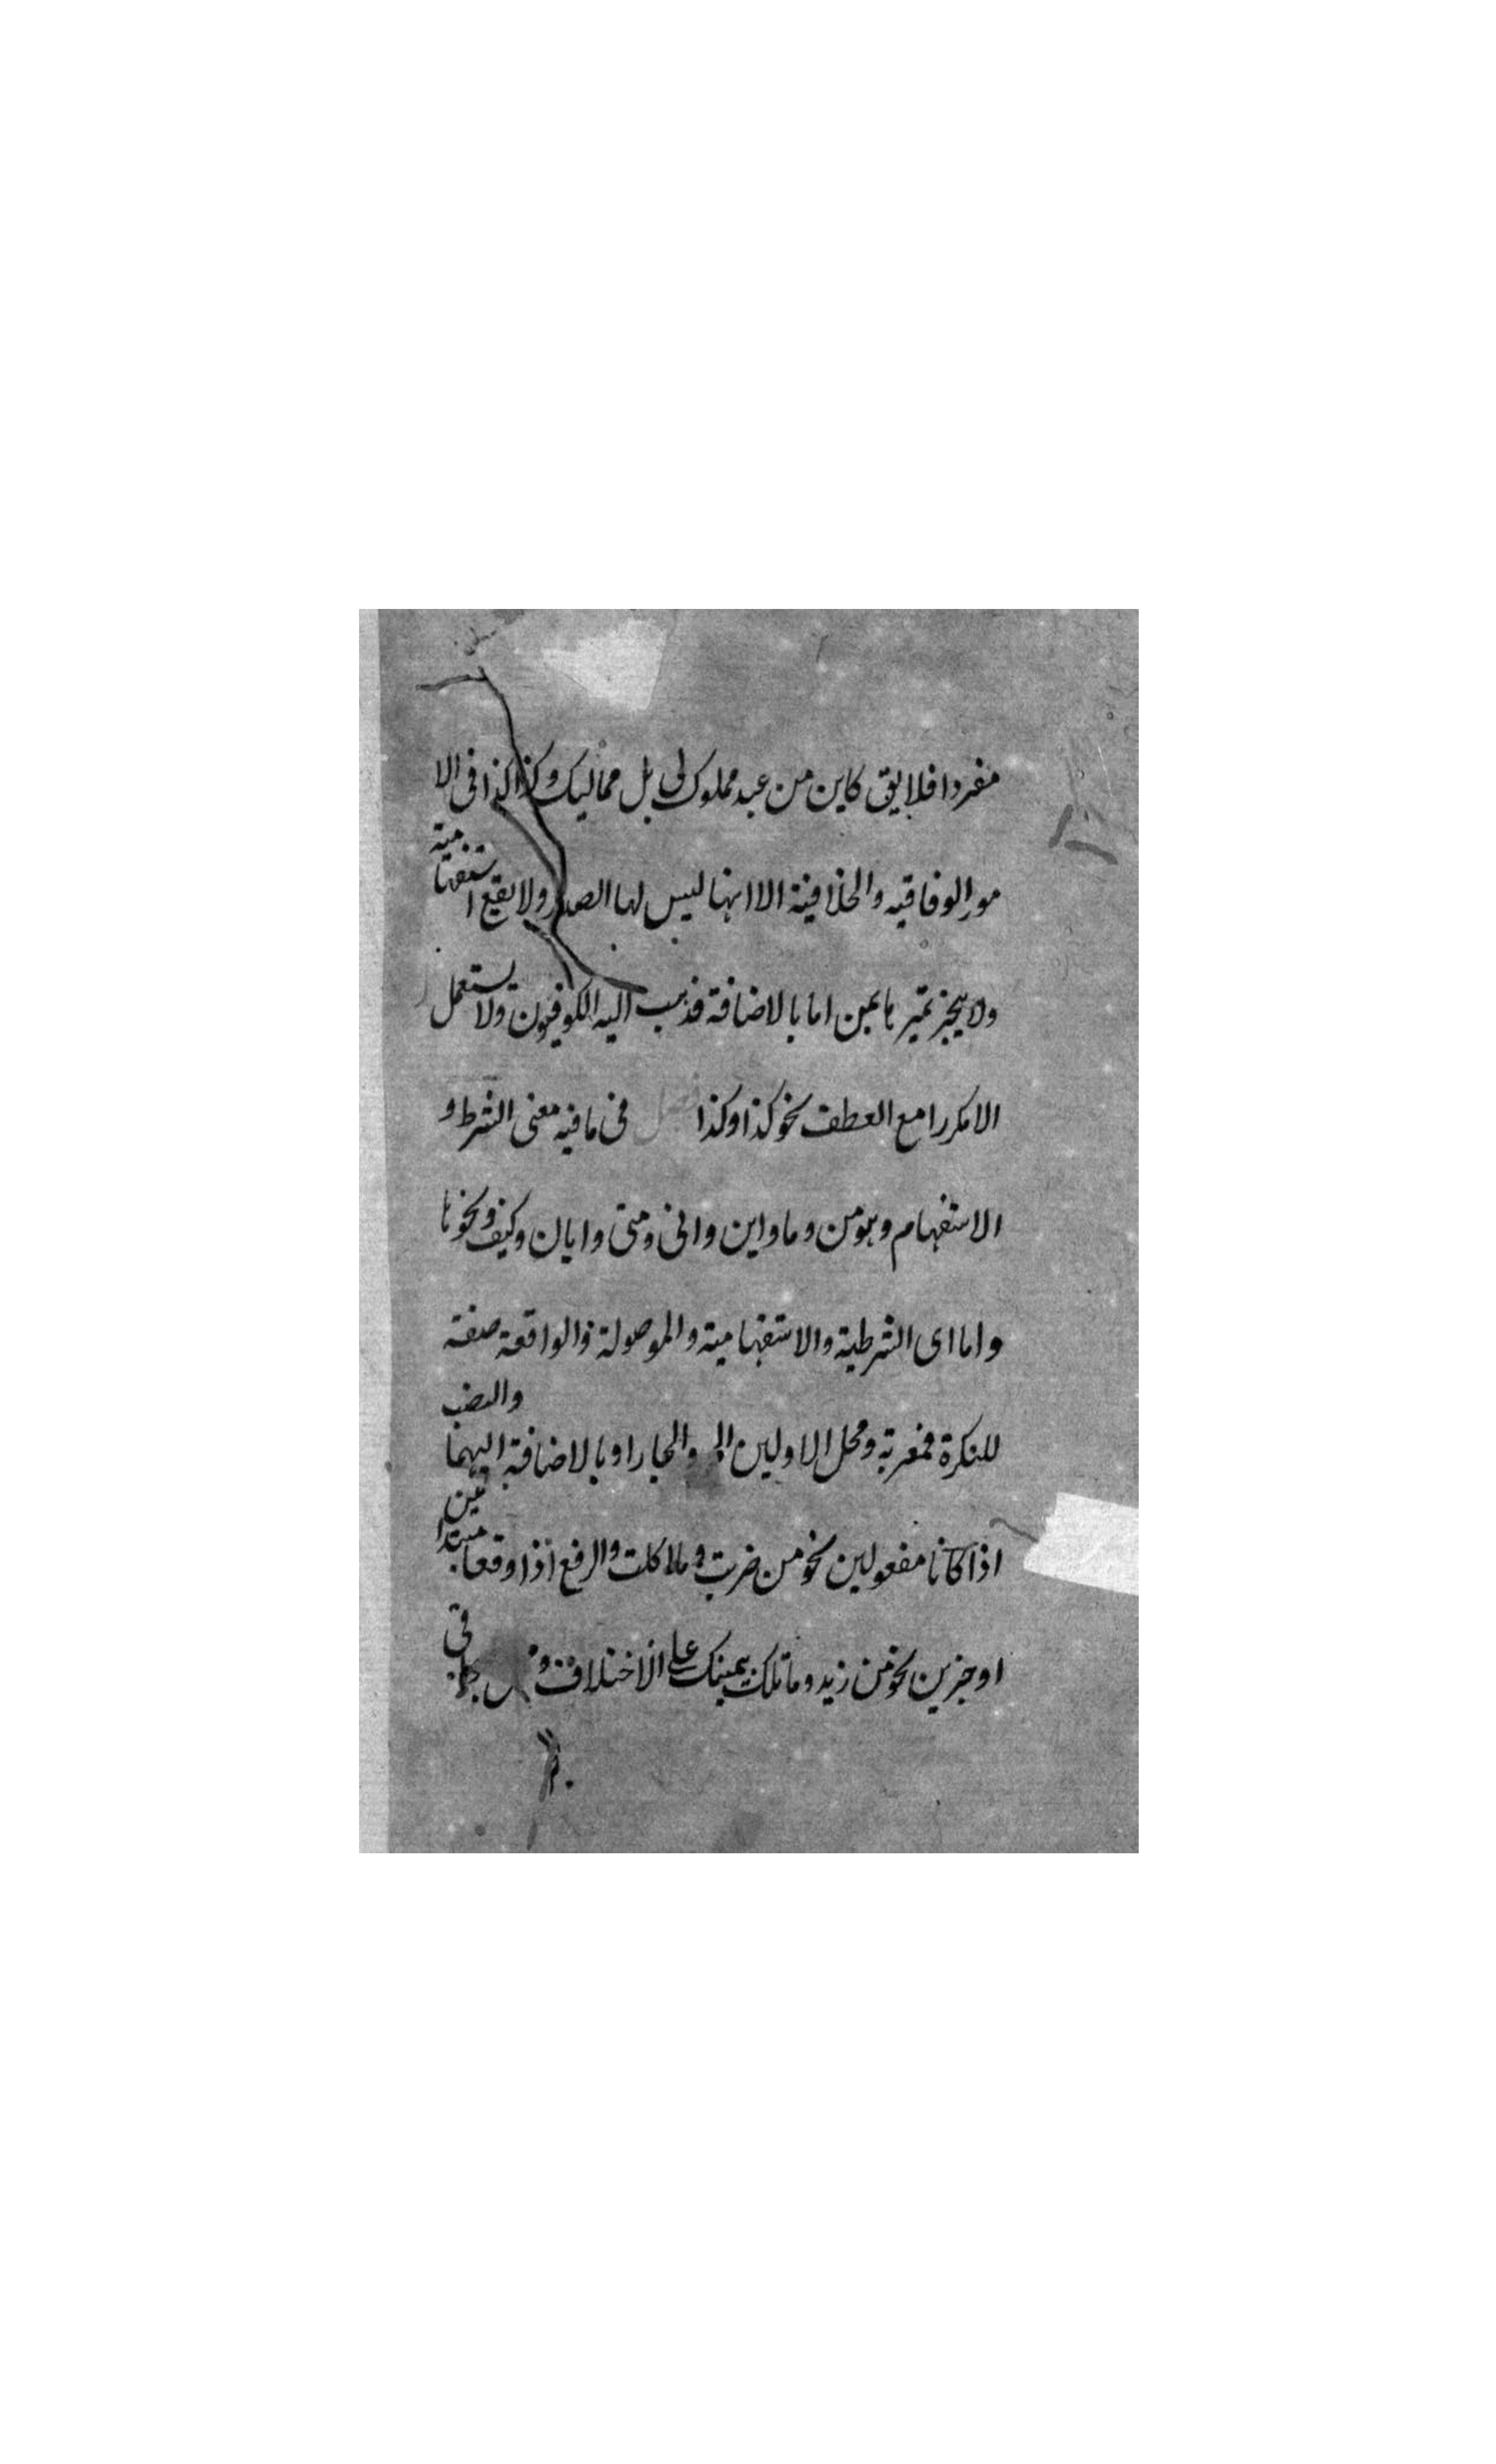 مفردا فلا يق كاين من عبد مملوك لي بل مماليك وكذا كذا في الا
مور الوفاقيه والخلافية الا انها ليس لها الصدر ولا يقع استفهامية
ولا يجز تميزها بمن اما بالاضافة فذهب اليه الكوفيون ولا يستعمل
الا مكررا مع العطف نحو كذا وكذا فصل في ما فيه معنى الشرط و
الاستفهام وهو من وما واين وانى ومتى وايان وكيف ونحوها
واما اى الشرطية والاستفهامية والموصولة والواقعة صفة
للنكرة فمعربة ومحل الاولين والجار او بالاضافة اليهما والنصب
اذا كانا مفعولين نحو من ضربت وما اكلت والرفع اذا وقعا مبتدأين
او خبرين نحو من زيد وما تلك بيمينك على الاختلاف